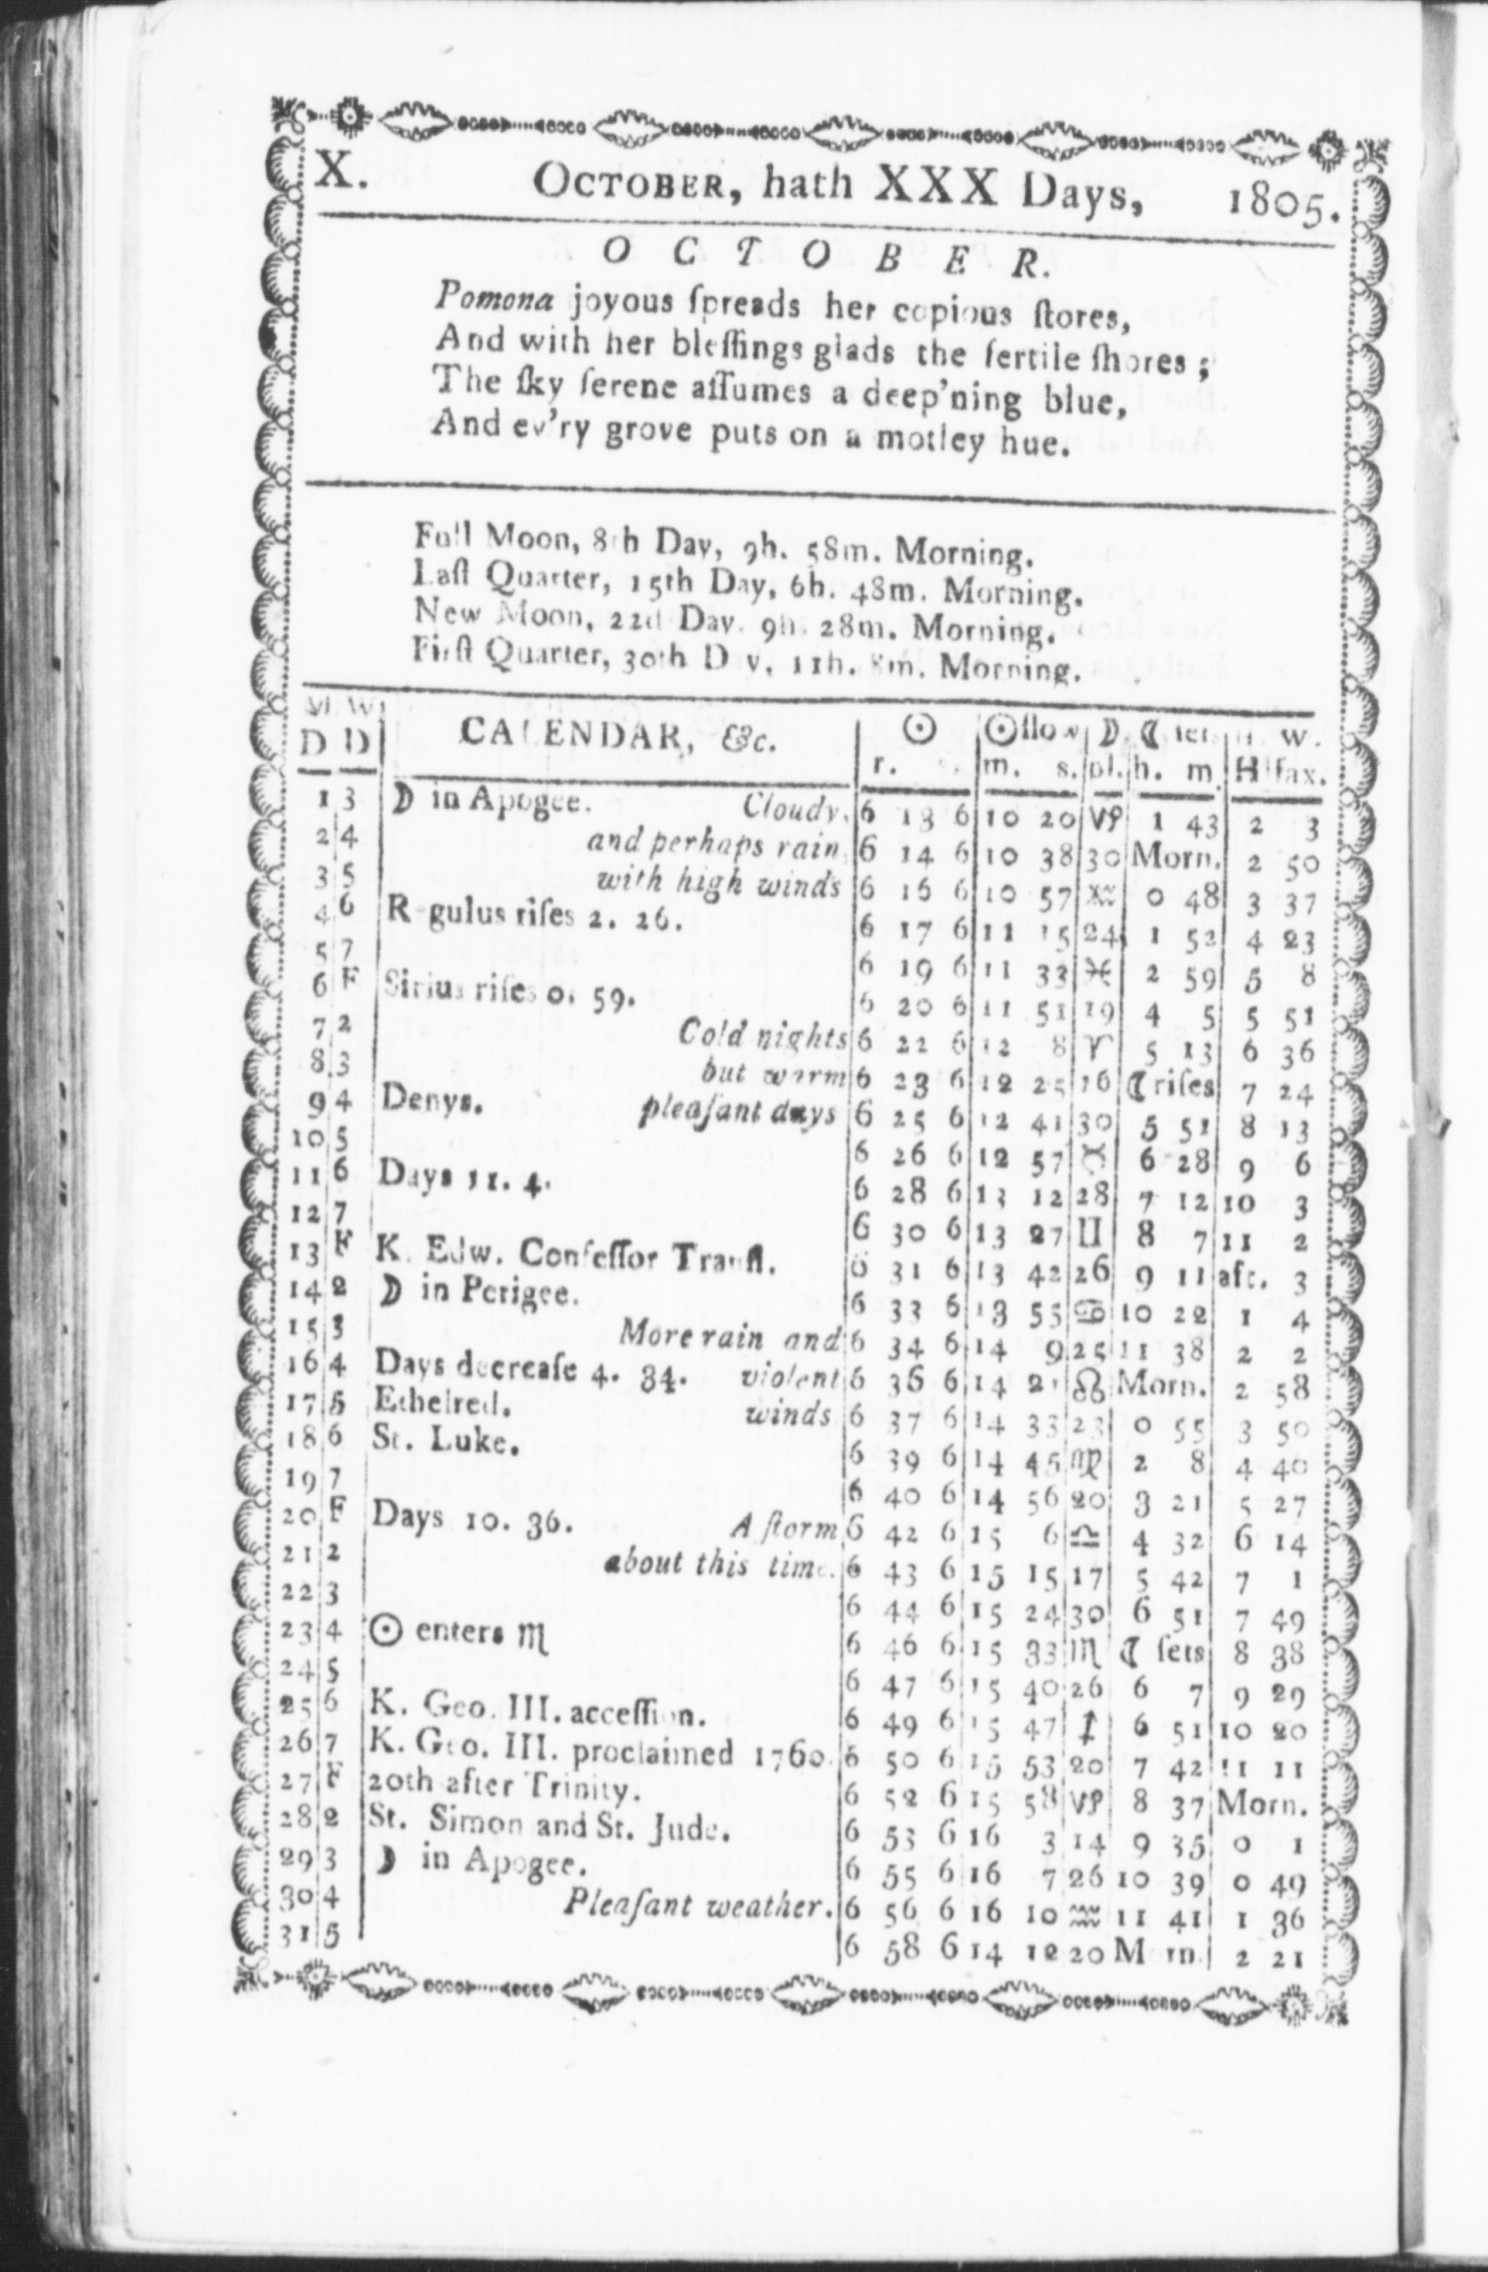 X. OCTOBER, hath XXX Days, 1805.
OCTOBER.
Pomona joyous ſpreads her copious ſtores,
And with her bleſſings glads the fertile ſhores ;
The ſky ſerene aſſumes a deep'ning blue,
And ev'ry grove puts on a motley hue.
Full Moon, 8th Day, 9h. 58m. Morning.
Laſt Quarter, 15th Day, 6h. 48m. Morning.
New Moon, 22d Day. 9h. 28m. Morning.
Firſt Quarter, 30th D y, 11h. 8m. Morning.
M W CALENDAR, &c. ☉ ☉ſlow ☽ ☾ ſets H. w.
D D r. s. m. s. pl. h. m H'fax.
1 3 ☽ in Apogee. Cloudy, 6 13 6 10 20 ♑ 1 43 2 3
2 4 and perhaps rain, 6 14 6 10 38 30 Morn. 2 50
3 5 with high winds 6 16 6 10 57 ♒ 0 48 3 37
4 6 Regulus riſes 2. 26. 6 17 6 11 15 24 1 52 4 23
5 7 6 19 6 11 33 ♓ 2 59 5 8
6 F Sirius riſes 0. 59. 6 20 6 11 51 19 4 5 5 51
7 2 Cold nights 6 22 6 12 8 ♈ 5 13 6 36
8 3 but warm 6 23 6 12 25 16 ☾riſes 7 24
9 4 Denys. pleaſant days 6 25 6 12 41 30 5 51 8 13
10 5 6 26 6 12 57 ♉ 6 28 9 6
11 6 Days 11. 4. 6 28 6 13 12 28 7 12 10 3
12 7 6 30 6 13 27 ♊ 8 7 11 2
13 F K. Edw. Confeſſor Tranſl. 6 31 6 13 42 26 9 11 aft. 3
14 2 ☽ in Perigee. 6 33 6 13 55 ♋ 10 22 1 4
15 3 More rain and 6 34 6 14 9 25 11 38 2 2
16 4 Days decreaſe 4. 34. violent 6 36 6 14 21 ♌ Morn. 2 58
17 5 Ethelred. winds 6 37 6 14 33 23 0 55 3 50
18 6 St. Luke. 6 39 6 14 45 ♍ 2 8 4 40
19 7 6 40 6 14 56 20 3 21 5 27
20 F Days 10. 36. A ſtorm 6 42 6 15 6 ♎ 4 32 6 14
21 2 about this time. 6 43 6 15 15 17 5 42 7 1
22 3 6 44 6 15 24 30 6 51 7 49
23 4 ☉ enters ♏ 6 46 6 15 33 ♏ ☾ ſets 8 38
24 5 6 47 6 15 40 26 6 7 9 29
25 6 K. Geo. III. acceſſion. 6 49 6 15 47 ♐ 6 51 10 20
26 7 K. Geo. III. proclaimed 1760. 6 50 6 15 53 20 7 42 11 11
27 F 20th after Trinity. 6 52 6 15 58 ♑ 8 37 Morn.
28 2 St. Simon and St. Jude. 6 53 6 16 3 14 9 35 0 1
29 3 ☽ in Apogee. 6 55 6 16 7 26 10 39 0 49
30 4 Pleaſant weather. 6 56 6 16 10 ♒ 11 41 1 36
31 5 6 58 6 14 12 20 M rn. 2 21